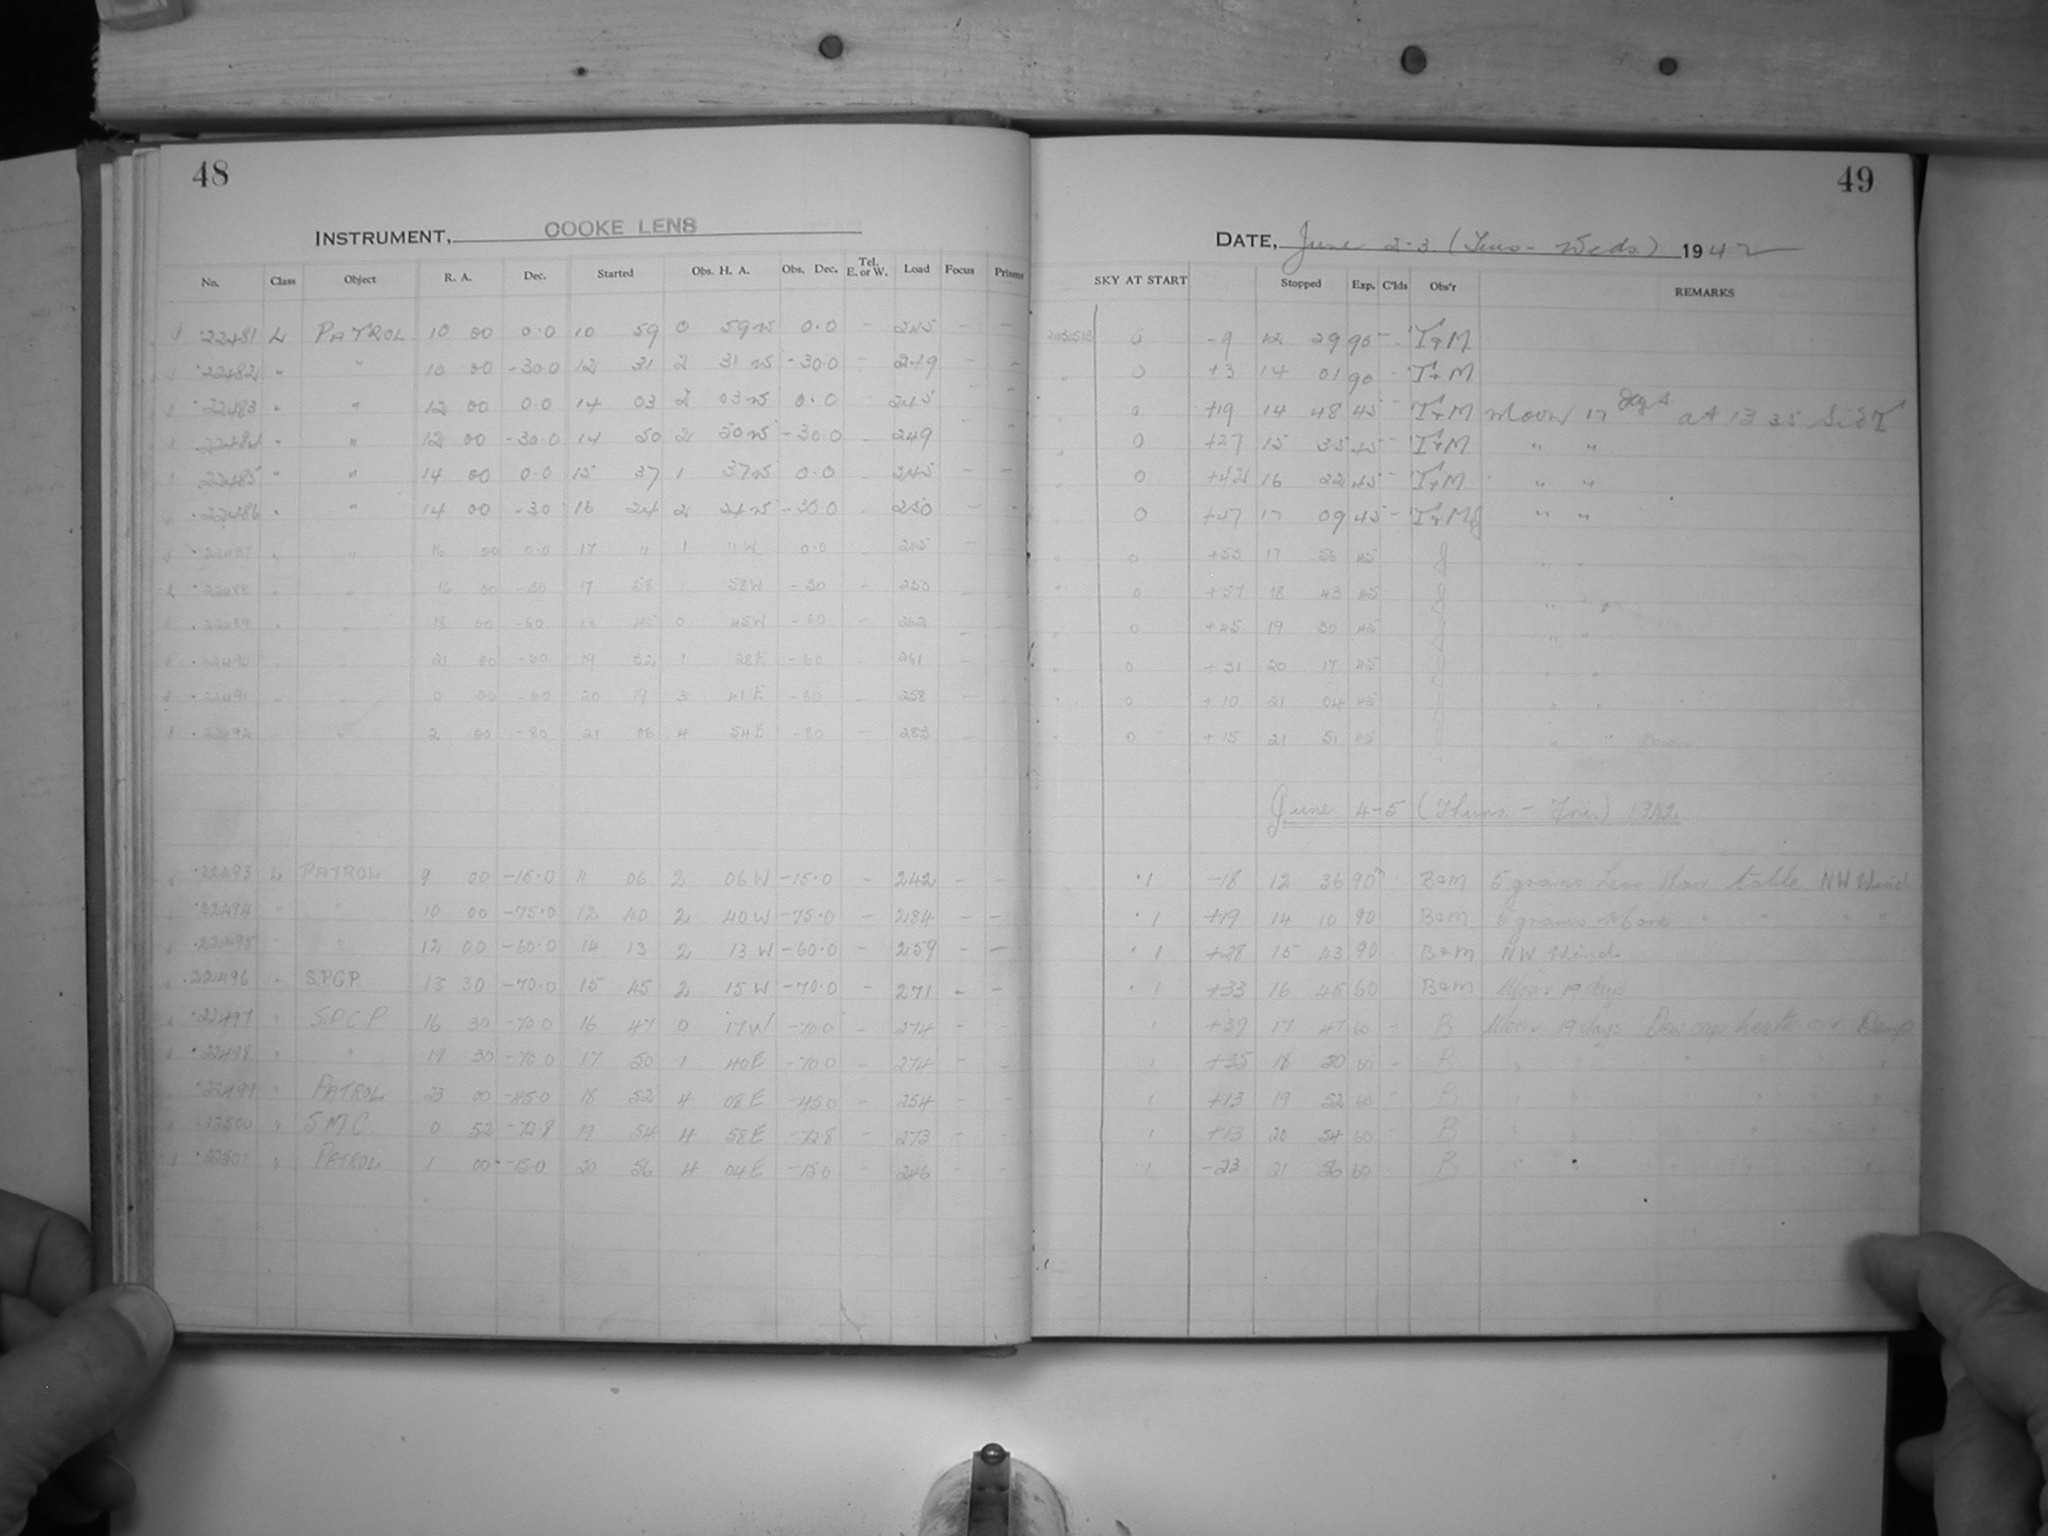 48
INSTRUMENT, COOKE LENS
No. Class Object R. A. Dec. Started Obs. H. A. Obs. Dec. Tel. E. or W. Load Focus Prisms
22481 L PATROL 10 00 0.0 10 59 0 59 W 0.0 - 245 - -
22482 " " 10 00 -30.0 12 31 2 31 W -30.0 - 249 - -
22483 " " 12 00 0.0 14 03 2 03 W 0.0 - 245 - -
22484 " " 12 00 -30.0 14 50 2 50 W -30.0 - 249 - -
22485 " " 14 00 0.0 15 37 1 37 W 0.0 - 245 - -
22486 " " 14 00 -30 16 24 2 24 W -30.0 - 250 - -
22487 " " 16 00 0.0 17 11 1 11 W 0.0 - 245 - -
22488 " " 16 00 -30 17 58 1 58 W -30 - 250 - -
22489 " " 18 00 -60 18 45 0 45 W -60 - 262 - -
22490 " " 21 00 -60 19 32 1 28 E -60 - 261 - -
22491 " " 0 00 -60 20 19 3 41 E -60 - 258 - -
22492 " 2 00 -80 21 06 4 54 E -80 - 283 - -
22493 L PATROL 9 00 -15.0 11 06 2 06 W -15.0 - 242 - -
22494 " " 10 00 -75.0 12 40 2 40 W -75.0 - 284 - -
22495 " " 12 00 -60.0 14 13 2 13 W -60.0 - 259 - -
22496 " S.P.G.P 13 30 -70.0 15 45 2 15 W -70.0 - 271 - -
22497 " S.P.C.P 16 30 -70.0 16 47 0 17 W -70.0 - 274 - -
22498 " " 19 30 -70.0 17 50 1 40 E -70.0 - 274 - -
22499 " PATROL 23 00 -45.0 18 52 4 08 E -45.0 - 254 - -
22500 " SMC 0 52 -72.8 19 54 4 58 E -72.8 - 273 - -
22501 " PATROL 1 00 -15.0 20 56 4 04 E -15.0 - 246 - -
49
DATE, June 2-3. (Tues - Weds) 1942
SKY AT START Stopped Exp. C'lds Obs'r REMARKS
0 -9 12 29 90 - T+M
" 0 +3 14 01 90 - T+M
0 +19 14 48 45 - T+M Moon 17 days at 13 35 Sid T
" 0 +27 15 35 45 - T+M " "
" 0 +42 16 22 45 - T+M " "
" 0 +47 17 09 45 - T+MJ " "
" 0 +55 17 56 45 J " "
" 0 +57 18 43 45 J " "
" 0 +45 19 30 45 J " "
" 0 +31 20 17 45 J " "
" 0 +10 21 04 45 J " "
" 0 +15 21 51 45 J " "
June 4-5 (Thurs. - Fri.) 1942
.1 -18 12 36 90 B+M 5 grams Less than table NW Wind
.1 +19 14 10 90 B+M 5 grams More " " " "
.1 +28 15 43 90 B+M NW Wind
.1 +33 16 45 60 B+M Moon 19 days
1 +39 17 47 60 - B Moon 19 days Dew cap heater on Damp
1 +35 18 50 60 - B " " " "
1 +13 19 52 60 - B " " " "
1 +13 20 54 60 - B " " " "
1 -23 21 56 60 - B " " " "